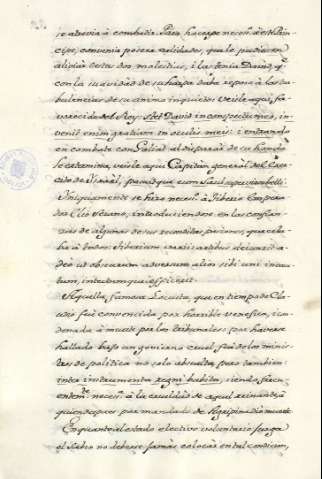 se atrevia à combatir. Para hacerse neces.º à este Principe, convenia poseer calidades, que le pudiesen
aliviar estos dos maleditos, i la tenia David, q.e
con la suavidad de su harpa daba reposo à las turbulencias de su animo inquieto: veisle aqui, favorecido del Rey: Stet David in conspectu meo, invenit enim gratiam in oculis meis: i entrando
en combate con Goliat al disparo de su honda
le extermina, veisle aqui Capitan general del Exercito de Israel,
Iniquamente se hizo neces.º à Tiberio Emperador Elio Seyano, introduciendose en las confianzas de algunas de sus reconditas pasiones, que ceba
ba à todos: Tiberium variis artibus devinxit adeò ut obscurum adversum alios sibi uni incautum, intectumque efficeret.
Aquella famosa Locusta, que en tiempo de Claudio fuè convencida por horrible venefica, condenada à muerte por los tribunales: por haverse
hallado bajo un govierno cruel fuè de los ministros de politica no solo absuelta, pero tambien
inter instrumenta regni habita, siendo
neces.º à la crueldad de aquel reinado, à
quien despues por mandado de Agripina dio muerte
En quanto al estado electivo voluntario
el Sabio no deberse jamàs colocar en tal